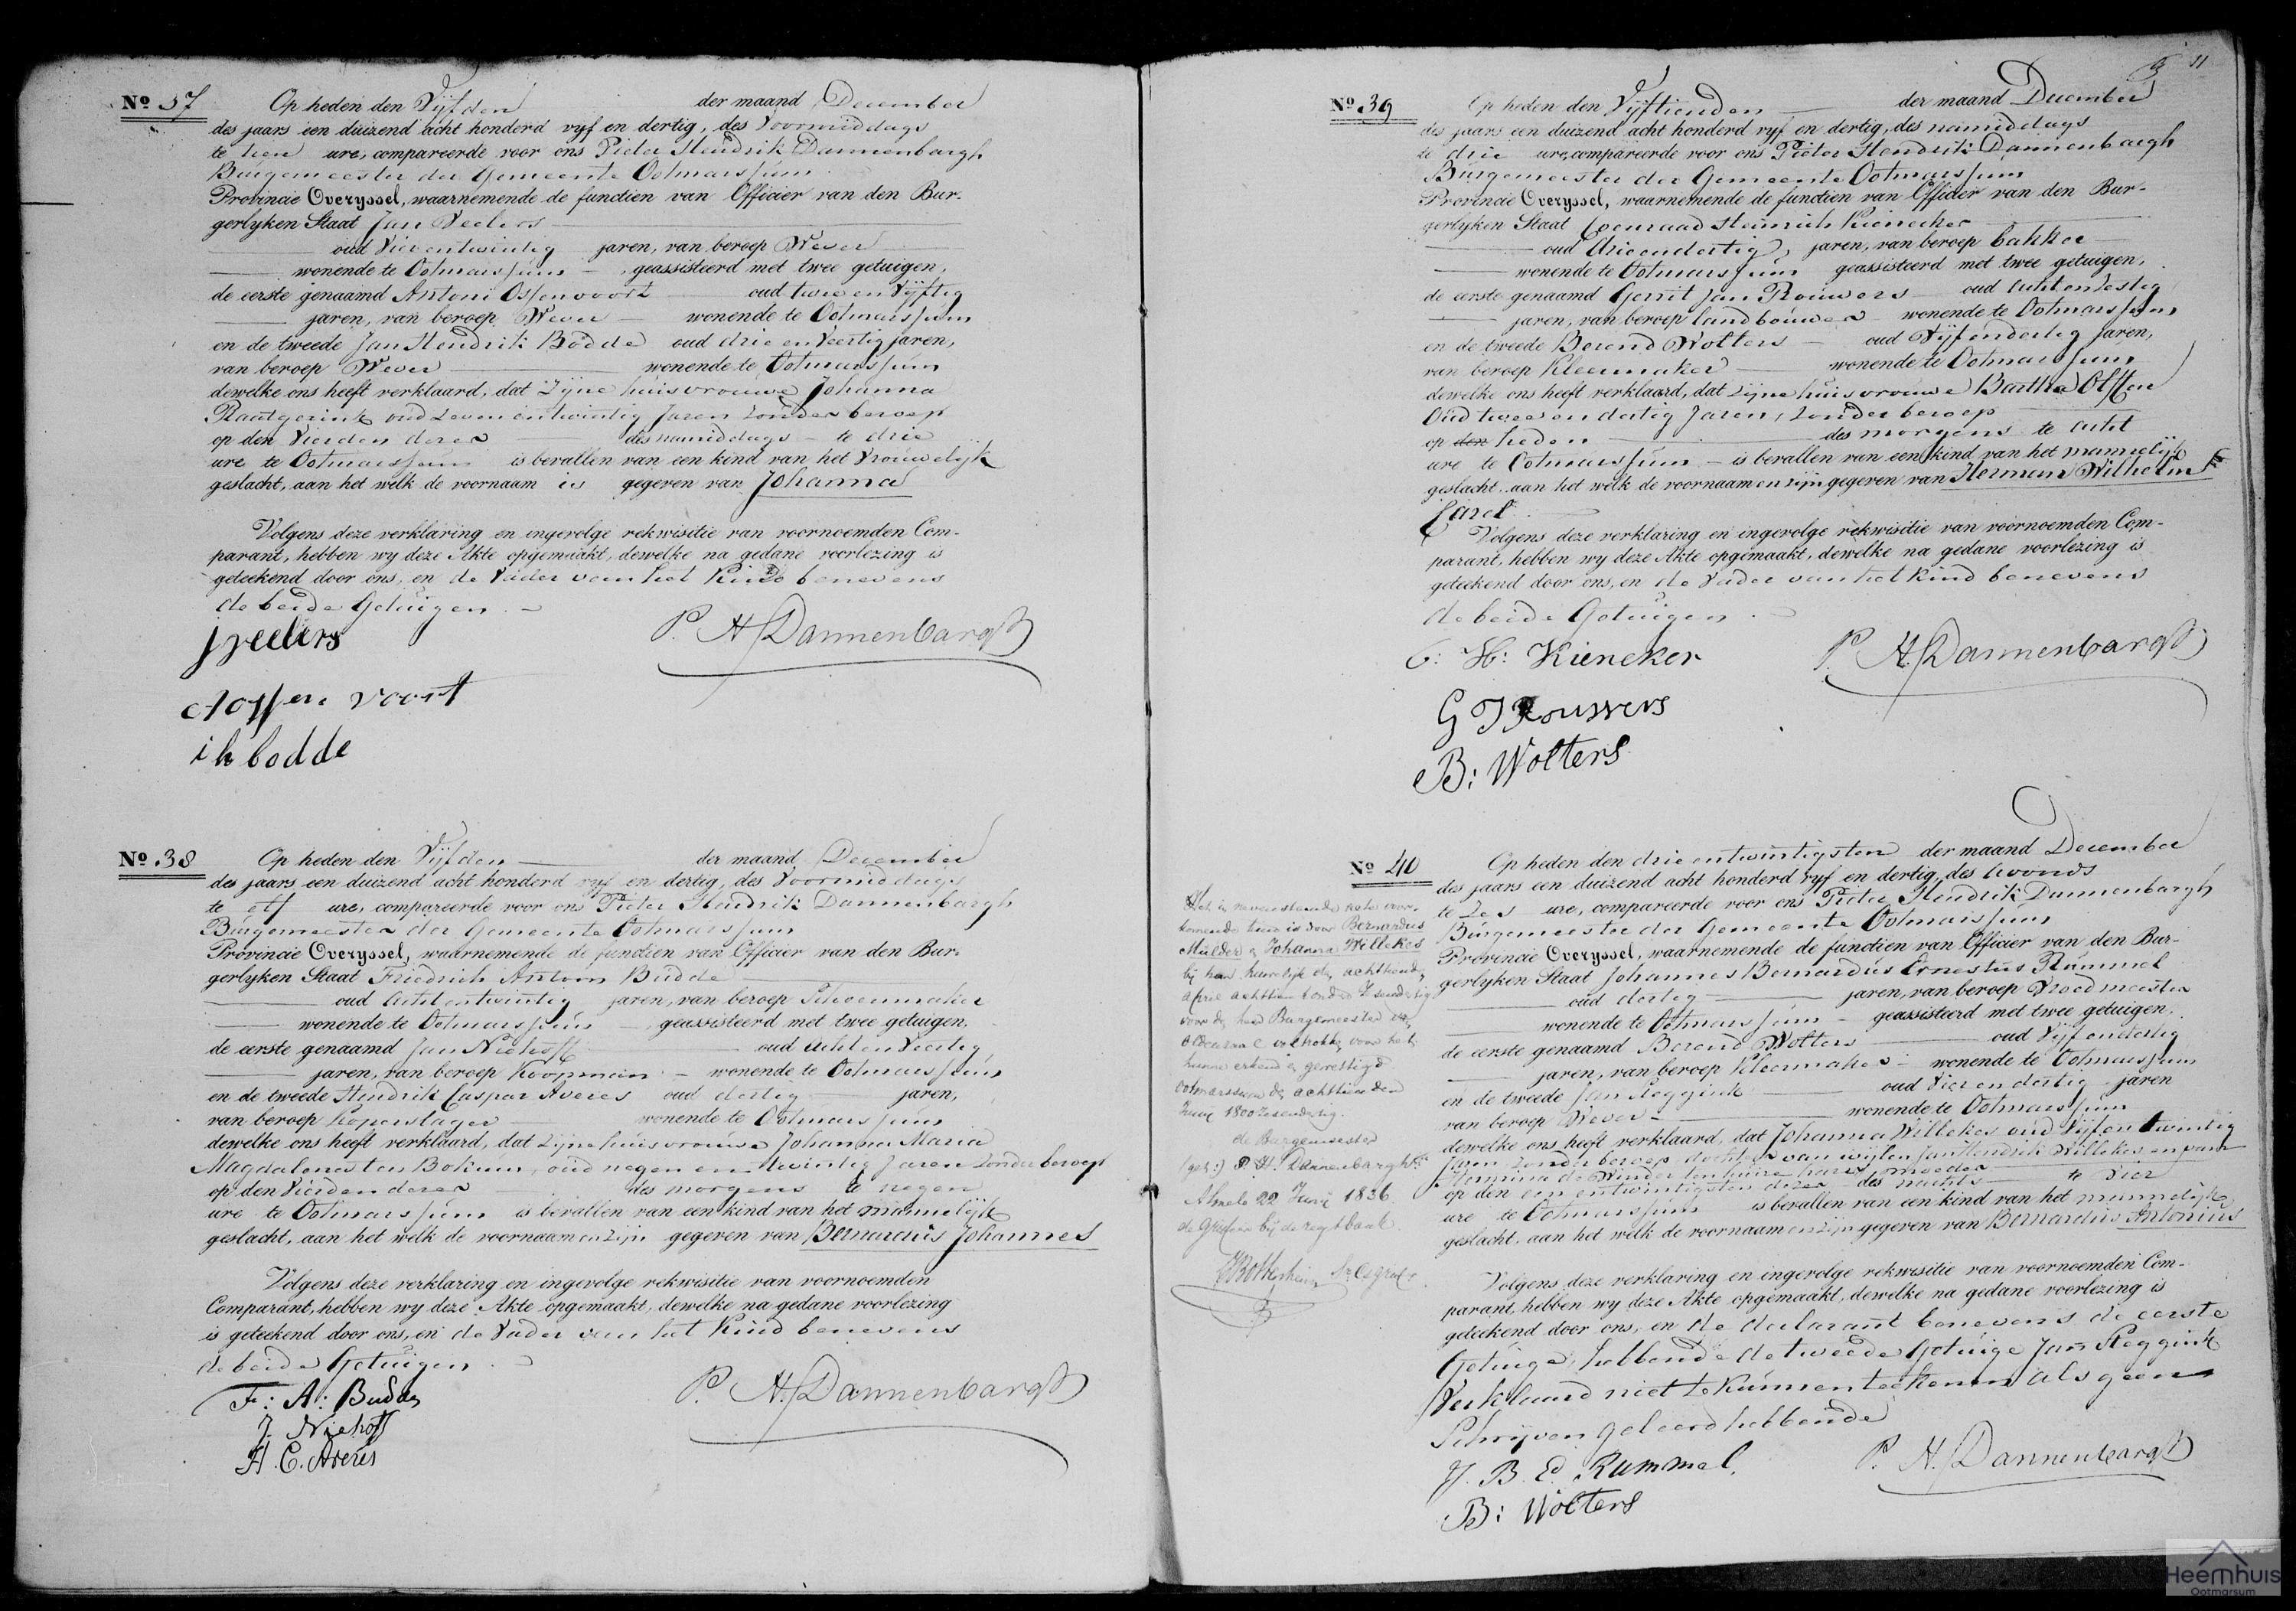 Nº 37 Op heden den Vijfden der maand December
des jaars een duizend acht honderd vyf en dertig, des Voormiddags
te tien ure, compareerde voor ons Pieter Hendrik Dannenbargh
Burgemeester der Gemeente Ootmarssum
Provincie Overyssel, waarnemende de functien van Officier van den Bur-
gerlyken Staat Jan Veelers
oud Vierentwintig jaren, van beroep Wever
wonende te Ootmarssum geassisteerd met twee getuigen,
de eerste genaamd Antoni Ossenvoort oud twee en Vijftig
jaren, van beroep Wever wonende te Ootmarssum
en de tweede Jan Hendrik Bödde oud drie en Veertig jaren,
van beroep Wever wonende te Ootmarssum
dewelke ons heeft verklaard, dat Zijne huisvrouwe Johanna
oud Zevenentwintig Jaren zonder beroep
op den Vierden dezer des namiddags te drie
ure te Ootmarssum is bevallen van een kind van het Vrouwelijk
geslacht, aan het welk de voornaam is gegeven van Johanna
Volgens deze verklaring en ingevolge rekwisitie van voornoemden Com-
parant, hebben wy deze Akte opgemaakt, dewelke na gedane voorlezing is
geteekend door ons, en de Vader van het Kind benevens
de beide Getuigen.
j veelers P. H. Dannenbargh
A ossen voort
i h bodde
Nº 38 Op heden den Vijfden der maand December
des jaars een duizend acht honderd vyf en dertig, des Voormiddags
te elf ure, compareerde voor ons Pieter Hendrik Dannenbargh
Burgemeester der Gemeente Ootmarssum
Provincie Overyssel, waarnemende de functien van Officier van den Bur-
gerlyken Staat Friedrich Antoon Budde
oud achtentwintig jaren, van beroep Schoenmaker
wonende te Ootmarssum geassisteerd met twee getuigen,
de eerste genaamd Jan Niehoff oud achtenVeertig
jaren, van beroep Koopman wonende te Ootmarssum
en de tweede Hendrik Caspar Averes oud dertig jaren,
van beroep Koperslager wonende te Ootmarssum
dewelke ons heeft verklaard, dat zijne huisvrouwe Johanna Maria
Magdalena ten Bokum, oud negen en twintig Jaren zonder beroep
op den Vierden dezer des morgens te negen
ure te Ootmarssum is bevallen van een kind van het mannelijk
geslacht, aan het welk de voornaamen zijn gegeven van Bernardus Johannes
Volgens deze verklaring en ingevolge rekwisitie van voornoemden
Comparant, hebben wy deze Akte opgemaakt, dewelke na gedane voorlezing
is geteekend door ons, en de Vader van het Kind benevens
de beide Getuigen
F: A: Budde P. H. Dannenbargh
J. Niehoff
H. C. Averes
11
Nº 39 Op heden den Vijftienden der maand December
des jaars een duizend acht honderd vyf en dertig, des namiddags
te drie ure, compareerde voor ons Pieter Hendrik Dannenbargh
Burgemeester der Gemeente Ootmarssum
Provincie Overyssel, waarnemende de functien van Officier van den Bur-
gerlyken Staat Coenraad Heinrich Kienecker
oud drieendertig, jaren, van beroep bakker
wonende te Ootmarssum geassisteerd met twee getuigen,
de eerste genaamd Gerrit Jan Rouwers oud achtenzestig
jaren, van beroep landbouwer wonende te Ootmarssum
en de tweede Berend Wolters oud Vijfendertig jaren,
van beroep Kleermaker wonende te Ootmarssum
dewelke ons heeft verklaard, dat zijne huisvrouwe Bartha Olften
Oud twee en dertig Jaren, zonder beroep
op den heden des morgens te acht
ure te Ootmarssum is bevallen van een kind van het mannelijk
geslacht, aan het welk de voornaamen zijn gegeven van Herman Wilhelm
Carel
Volgens deze verklaring en ingevolge rekwisitie van voornoemden Com-
parant, hebben wy deze Akte opgemaakt, dewelke na gedane voorlezing is
geteekend door ons, en de Vader van het Kind benevens
de beide Getuigen.
C: H: Kieneker P. H. Dannenbargh
G J Rouwers
B: Wolters
Nº 40 Op heden den drieentwintigsten der maand December
des jaars een duizend acht honderd vyf en dertig, des avonds
te Zes ure, compareerde voor ons Pieter Hendrik Dannenbargh
Burgemeester der Gemeente Ootmarssum
Provincie Overyssel, waarnemende de functien van Officier van den Bur-
gerlyken Staat Johannes Bernardus Ernestus Rümmel
oud dertig jaren, van beroep Vroedmeester
wonende te Ootmarssum geassisteerd met twee getuigen,
de eerste genaamd Berend Wolters oud Vijfendertig
jaren, van beroep Kleermaker wonende te Ootmarssum
en de tweede Jan Reggink oud Vier en dertig jaren
van beroep Wever wonende te Ootmarssum
dewelke ons heeft verklaard, dat Johanna Willekes oud Vijfentwintig
Jaren zonder beroep dochter van wijlen Jan Hendrik Willekes en van
de Winder ten huize harer moeder
op den eenentwintigsten dezer des nachts te Vier
ure te Ootmarssum is bevallen van een kind van het mannelijk
geslacht, aan het welk de voornaamen zijn gegeven van Bernardus Antonius
Volgens deze verklaring en ingevolge rekwisitie van voornoemden Com-
parant, hebben wy deze Akte opgemaakt, dewelke na gedane voorlezing is
geteekend door ons, en de declarant benevens de eerste
Getuige, hebbende de tweede Getuige Jan Reggink
Verklaard niet te kunnen teekenen als geen
Schrijven geleerd hebbende
J. B. E. Rummel. P. H. Dannenbargh
B: Wolters
Het in nevenstaande acte voor-
komende kind is door Bernardus
Mulder en Johanna Willekes
bij hun huwelijk den achttienden
April achttien honderd Zesendertig
voor den heer Burgemeester van
voltrokken, voor het
hunne erkend en gewettigd
Ootmarssum den achttienden
Junij 1800 Zesendertig.
de Burgemeester
(get:) P. H. Dannenbargh
Almelo 22 Junij 1836
de Griffier bij de regtbank
Heemhuis
Ootmarsum